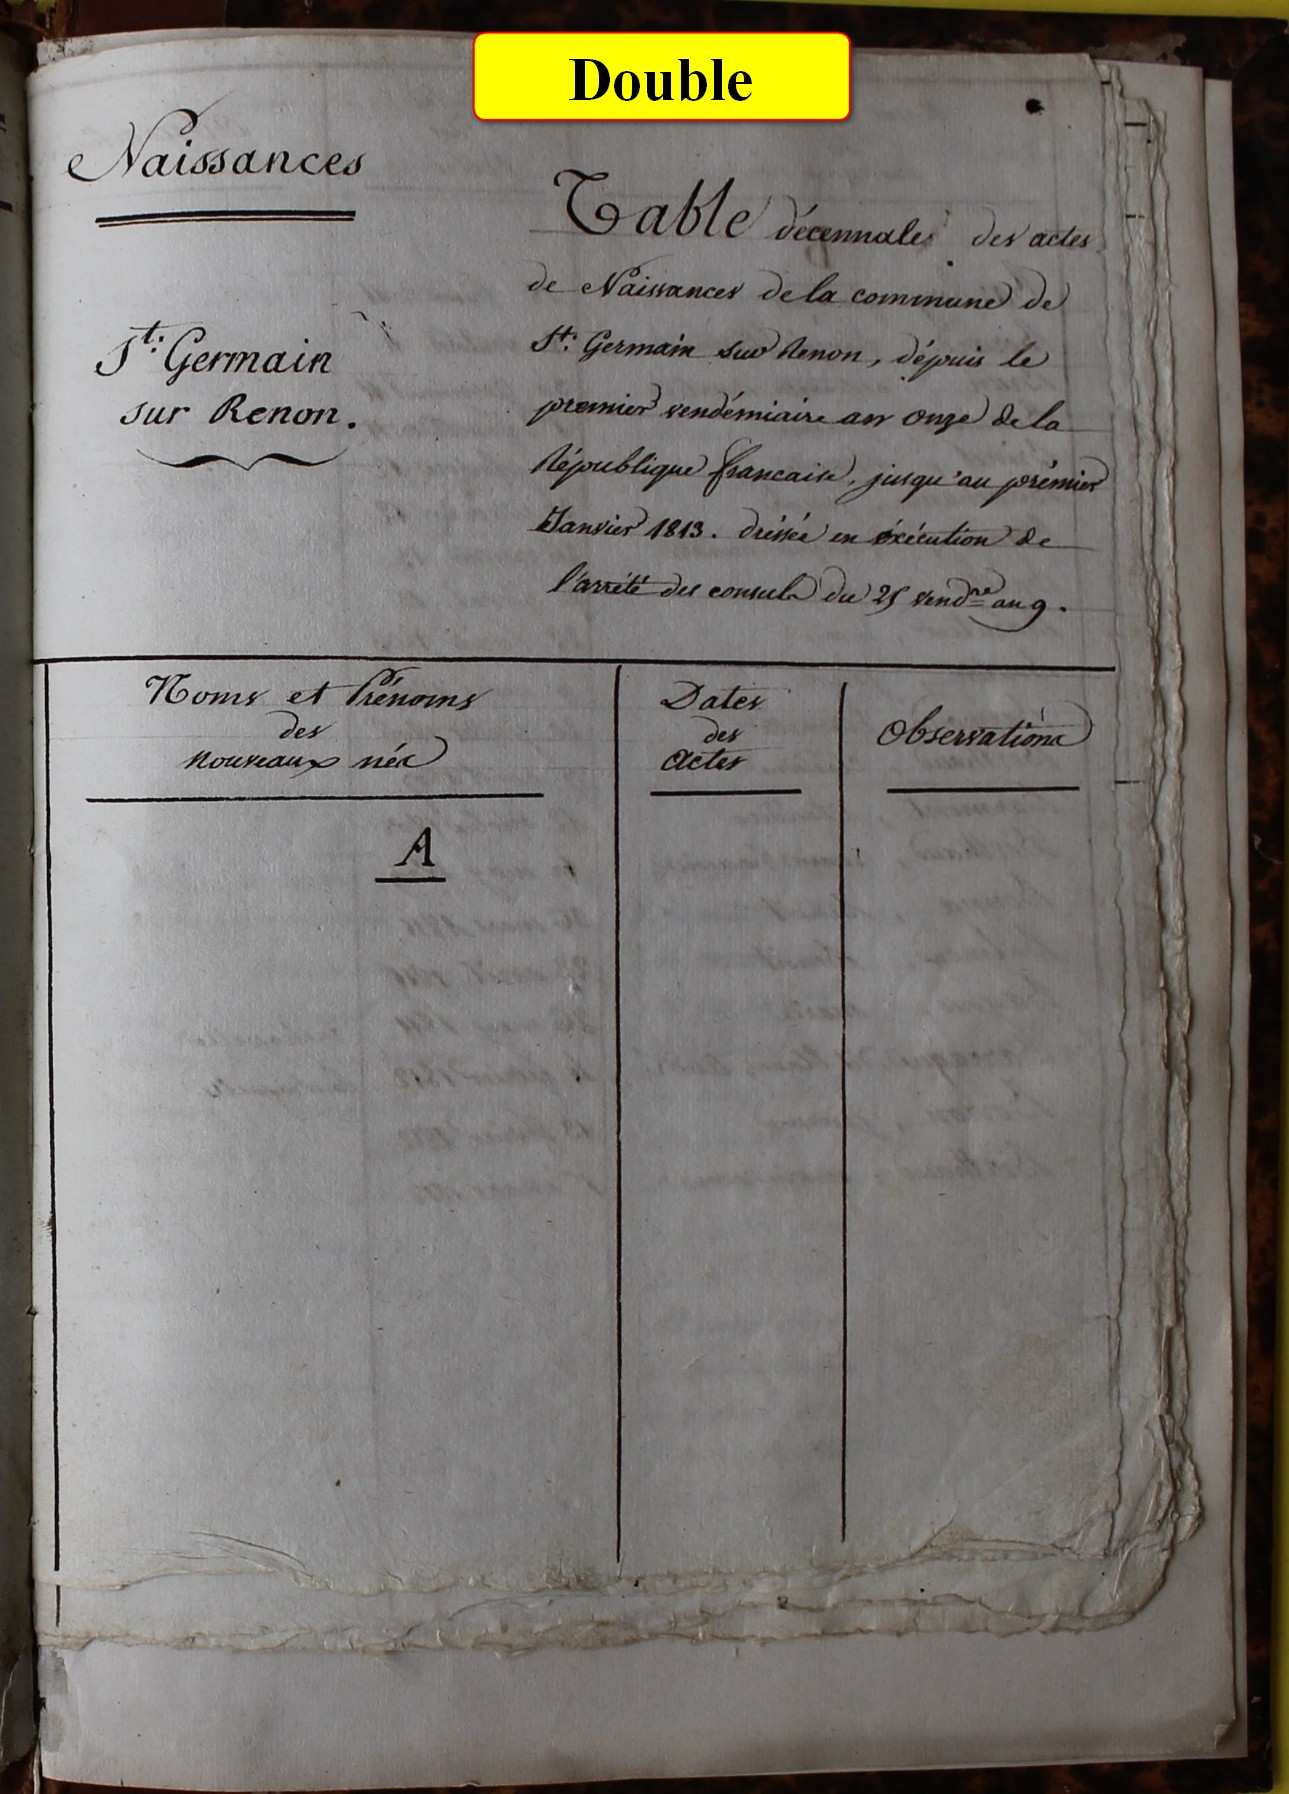 Double
Naissances
St. Germain
sur Renon.
Table décennale des actes
de Naissances de la commune de
St. Germain sur Renon, dépuis le
premier vendémiaire an onze de la
République francaise, jusqu'au prémier
Janvier 1813. dréssée en éxécution de
l'arrêté des consuls du 25 vendre an 9.
Noms et Prénoms
des
nouveaux nés
Dates
des
Actes
Observations
A